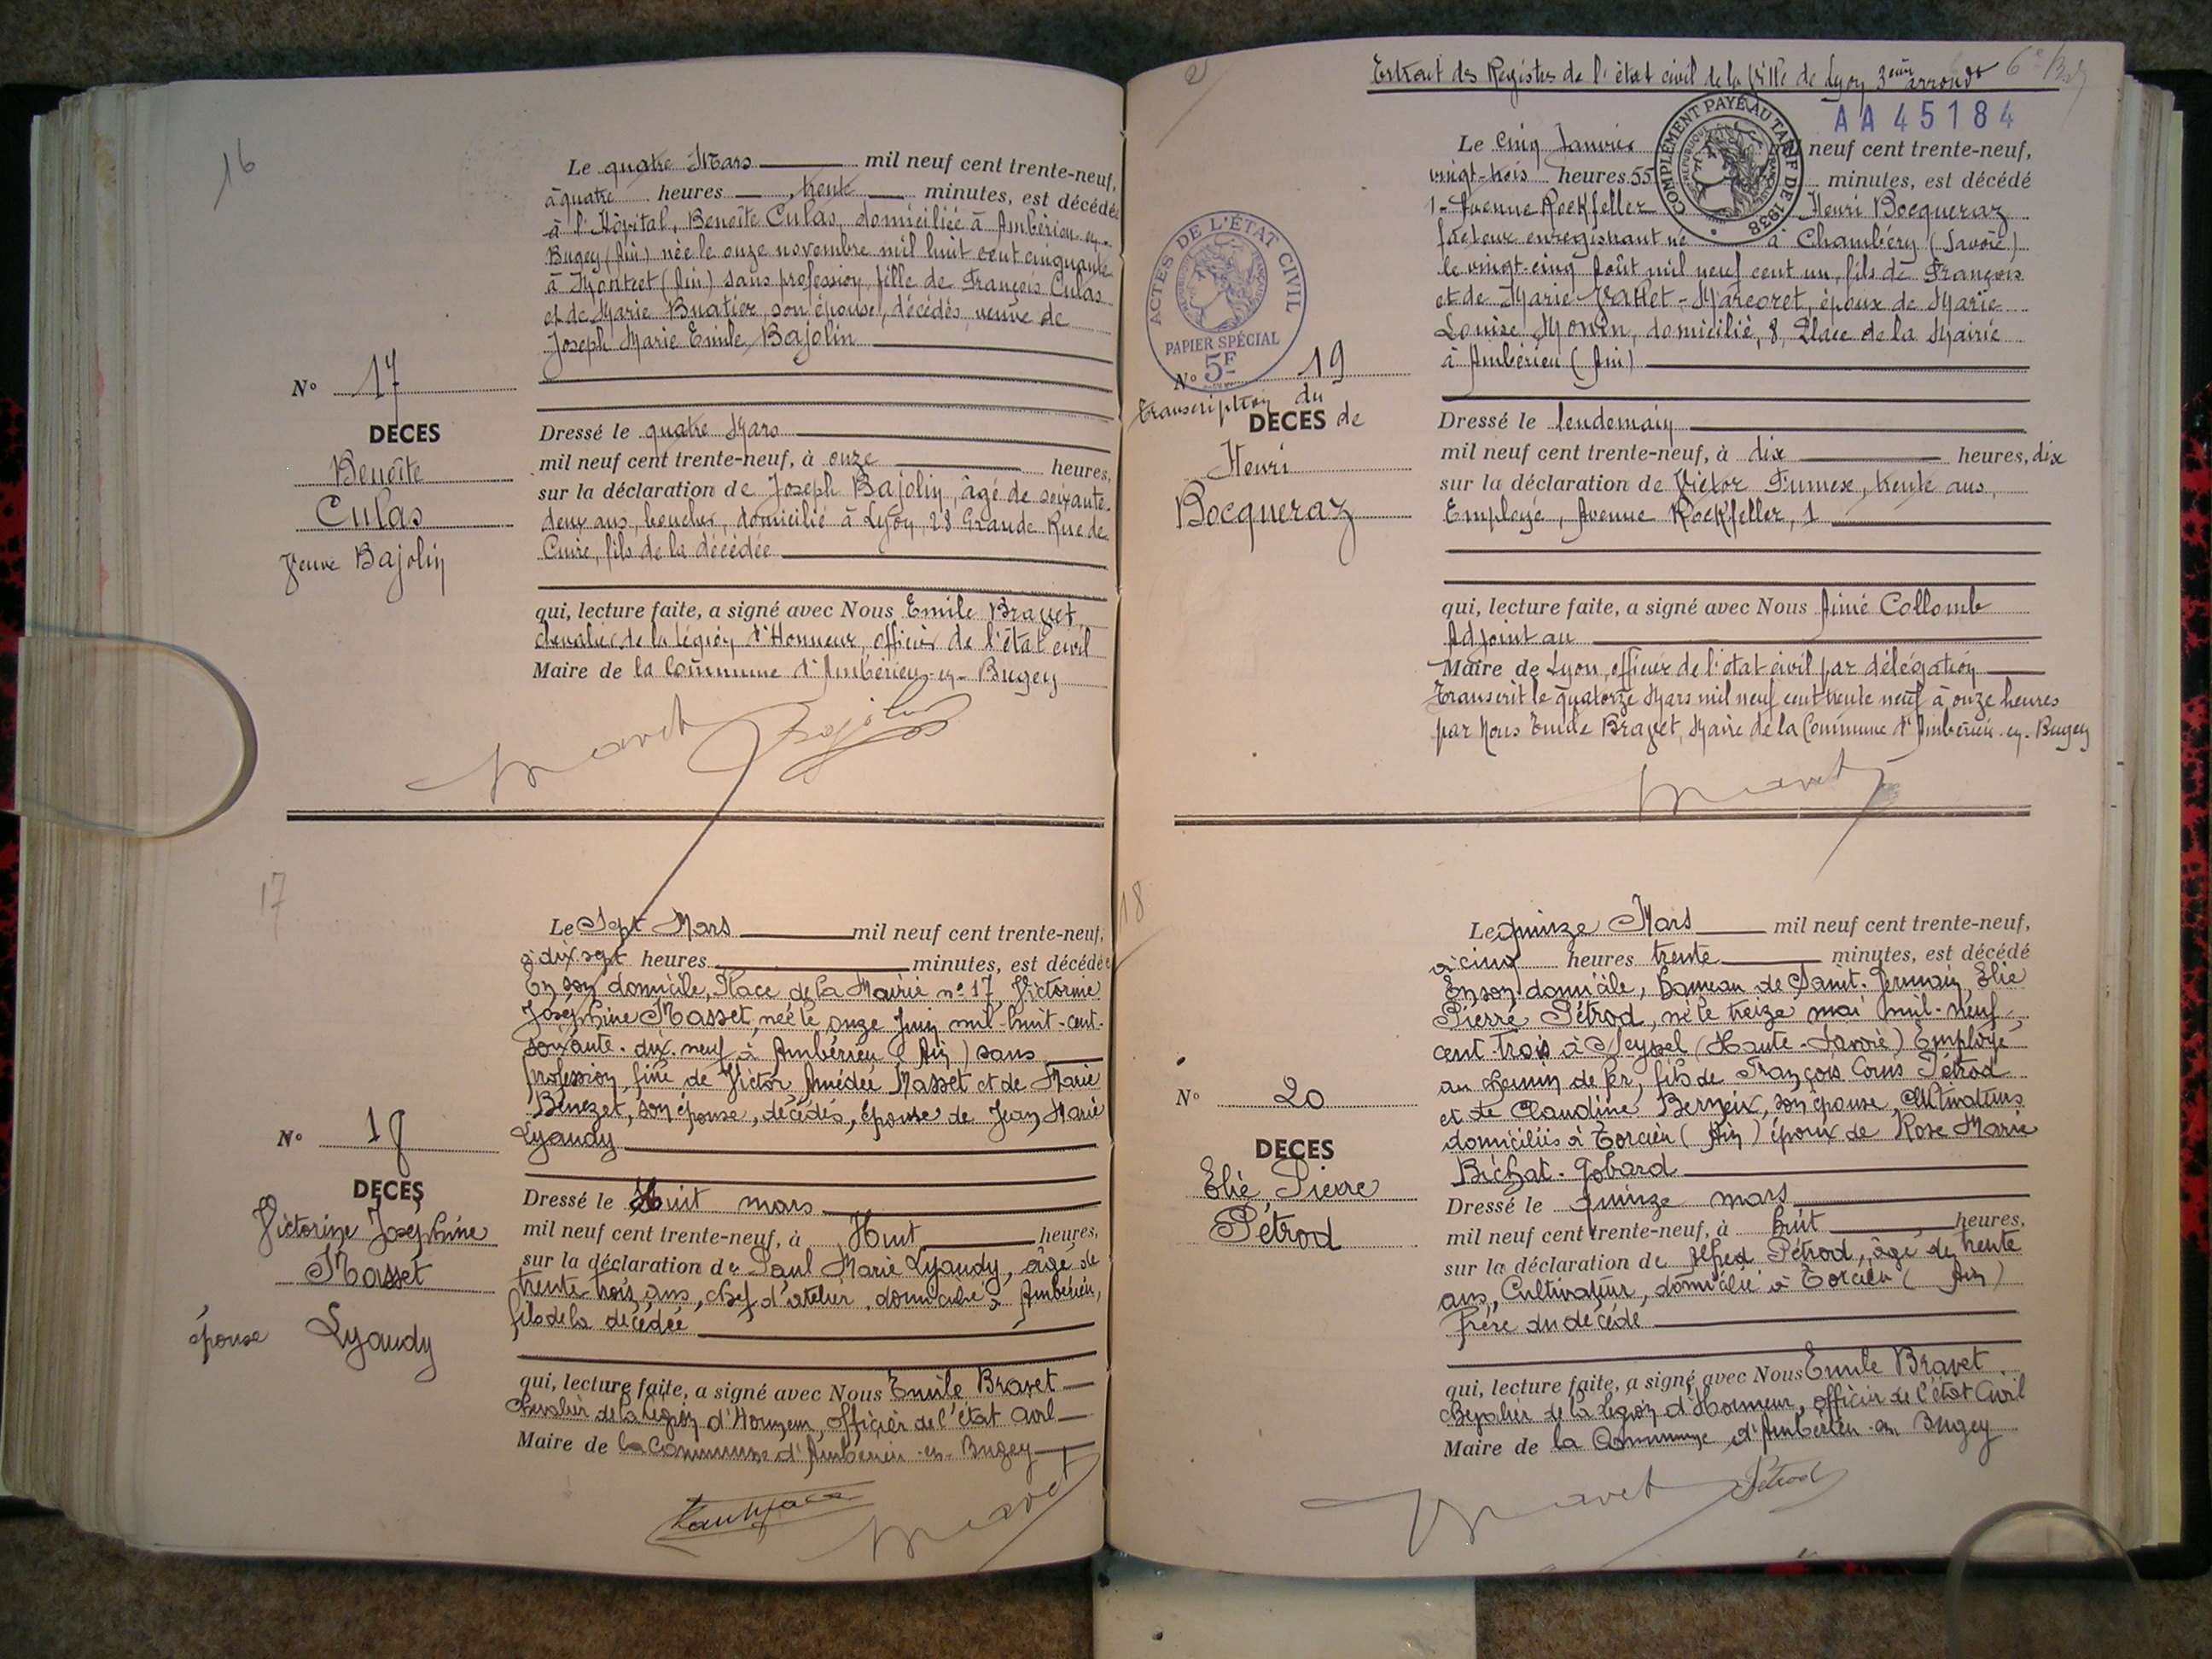 16
Le quatre Mars mil neuf cent trente-neuf,
à quatre heures trente minutes, est décédée
à l'Hôpital, Benoîte Culas, domiciliée à Ambérieu-en-
Bugey (Ain) née le onze novembre mil huit cent cinquante
à Montcet (Ain) sans profession, fille de François Culas
et de Marie Buatier, son épouse, décédés, veuve de
Joseph Marie Emile Bajolin
N° 17
DECES
Benoîte
Culas
Veuve Bajolin
Dressé le quatre Mars
mil neuf cent trente-neuf, à onze heures,
sur la déclaration de Joseph Bajolin, âgé de soixante-
deux ans, boucher, domicilié à Lyon, 28 Grande Rue de
Cuire, fils de la décédée
qui, lecture faite, a signé avec Nous Emile Bravet,
chevalier de la Légion d'Honneur, officier de l'état civil
Maire de la Commune d'Ambérieu-en-Bugey
Bravet Bajolin
17
Le Sept Mars mil neuf cent trente-neuf,
à dix-sept heures minutes, est décédée
En son domicile, Place de la Mairie n° 17, Victorine
Joséphine Masset, née le onze Juin mil-huit-cent-
soixante-dix-neuf à Ambérieu (Ain) sans
profession, fille de Victor Amédée Masset et de Marie
Bénezet, son épouse, décédés, épouse de Jean Marie
Lyaudy
N° 18
DECES
Victorine Joséphine
Masset
épouse Lyaudy
Dressé le Huit mars
mil neuf cent trente-neuf, à Huit heures,
sur la déclaration de Paul Marie Lyaudy, âgé de
trente trois ans, chef d'atelier, domicilié à Ambérieu,
fils de la décédée
qui, lecture faite, a signé avec Nous Emile Bravet
Chevalier de la Légion d'Honneur, officier de l'état civil
Maire de la Commune d'Ambérieu-en-Bugey
Bravet
2
Extrait des Registres de l'état civil de la Ville de Lyon 3eme arrondt
AA 45184
COMPLÉMENT PAYÉ AU TARIF DE 1938
Le Cinq Janvier mil neuf cent trente-neuf,
vingt-trois heures 55 minutes, est décédé
1-Avenue Rockfeller Henri Bocqueraz
facteur enregistrant né à Chambéry (Savoie)
le vingt-cinq Août mil neuf cent un, fils de François
et de Marie Mallet-Marcoret, époux de Marie
Louise Monin, domicilié, 8, Place de la Mairie
à Ambérieu (Ain)
ACTES DE L'ÉTAT CIVIL
RÉPUBLIQUE FRANÇAISE
PAPIER SPÉCIAL
5F
N° 19
transcription du
DECES de
Henri
Bocqueraz
Dressé le lendemain
mil neuf cent trente-neuf, à dix heures, dix
sur la déclaration de Victor Fumex, trente ans,
Employé, Avenue Rockfeller, 1
qui, lecture faite, a signé avec Nous Aimé Collomb
Adjoint au
Maire de Lyon, officier de l'état civil par délégation
Transcrit le quatorze Mars mil neuf cent trente neuf à onze heures
par Nous Emile Bravet, Maire de la Commune d'Ambérieu-en-Bugey
Bravet
18
Le quinze Mars mil neuf cent trente-neuf,
à cinq heures trente minutes, est décédé
En son domicile, hameau de Saint-Germain, Elie
Pierre Pétrod, né le treize mai mil-neuf-
cent-trois à Seyssel (Haute-Savoie) Employé
au chemin de fer, fils de François Louis Pétrod
et de Claudine Berneix, son épouse, Cultivateurs
domiciliés à Torcieu (Ain) époux de Rose Marie
Bichat-Gobard
N° 20
DECES
Elie Pierre
Pétrod
Dressé le quinze mars
mil neuf cent trente-neuf, à huit heures,
sur la déclaration de Alfred Pétrod, âgé de trente
ans, Cultivateur, domicilié à Torcieu (Ain)
frère du décédé
qui, lecture faite, a signé avec Nous Emile Bravet
Chevalier de la Légion d'Honneur, officier de l'état Civil
Maire de la Commune d'Ambérieu-en-Bugey
Bravet Pétrod